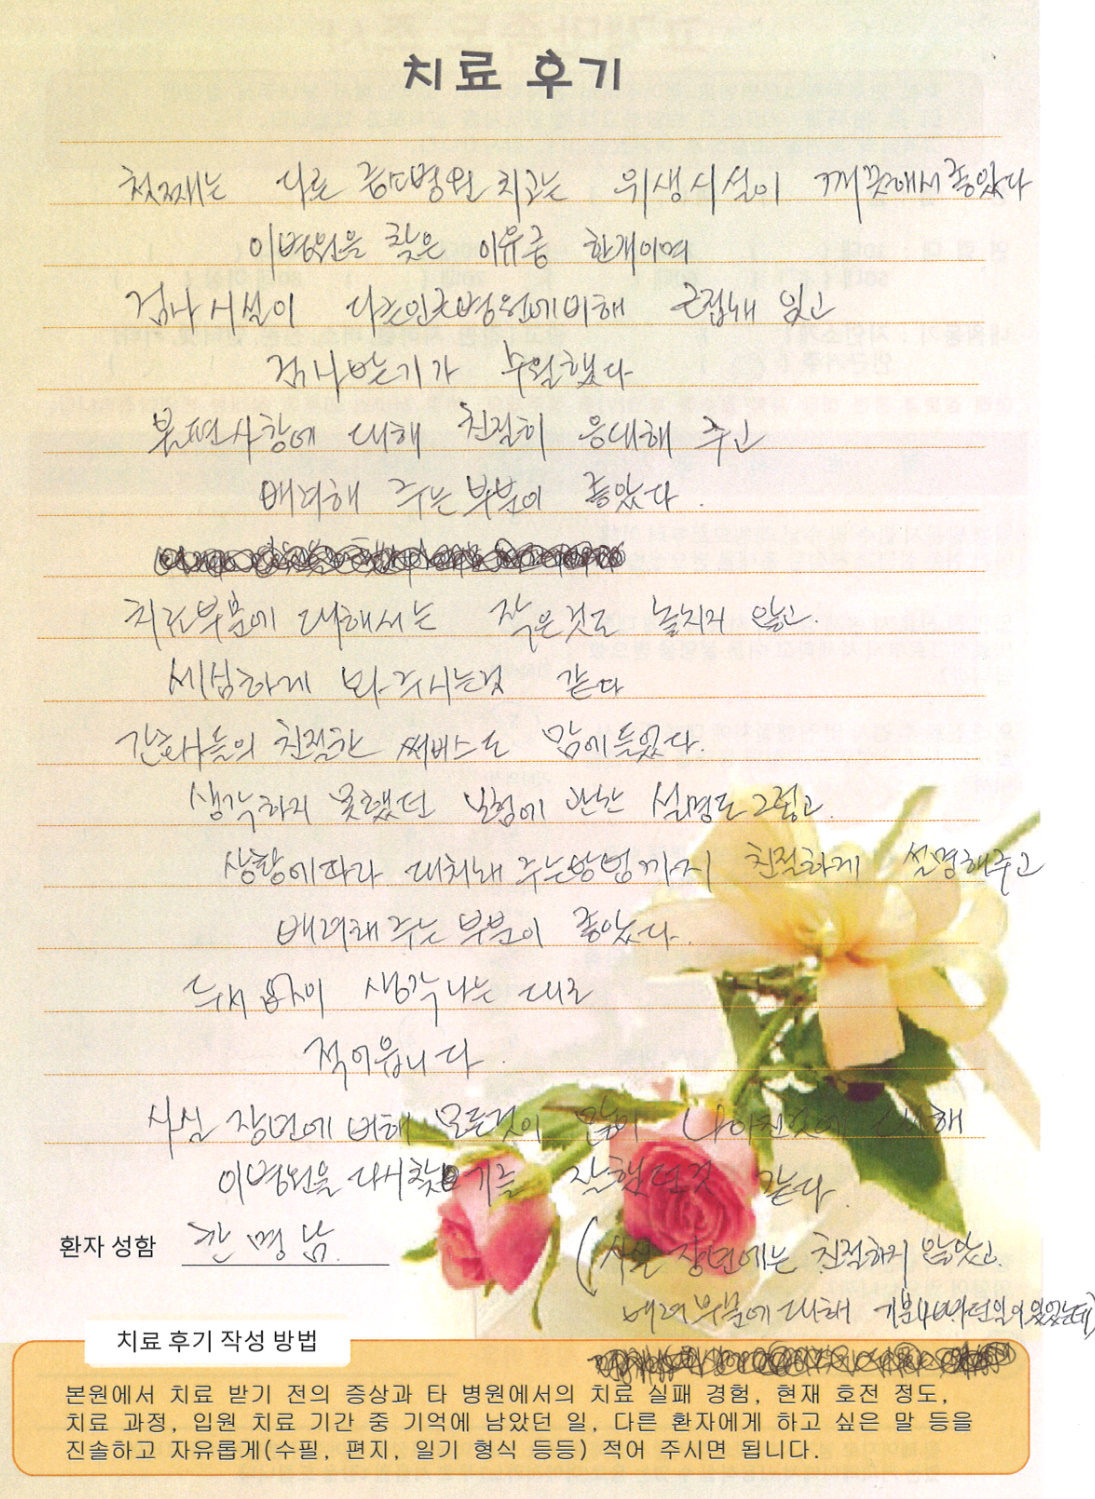 치료 후기
첫째는 다른 중소병원 치고는 위생시설이 깨끗해서 좋았다
이병원을 찾은 이유중 한개이며
검사 시설이 다른인근병원에비해 근접해 있고
검사받기가 수월했다
불편사항에 대해 친절히 응대해 주고
배려해 주는 부분이 좋았다.
치료부분에 대해서는 작은것도 놓치지 않고.
세심하게 봐주시는것 같다
간호사들의 친절한 써비스도 맘에들었다.
생각하지 못했던 보험에 관한 설명도그렇고.
상황에따라 대처해 주는방법까지 친절하게 설명해주고
배려해 주는 부분이 좋았다.
두서 없이 생각나는 대로
적어봅니다.
사실 작년에 비해 모든것이 많이 나아진것에 대해
이병원을 다시찾기를 잘했던것 같다.
환자 성함 한명남.
(사실 작년에는 친절하지 않았고.
배려 부분에 대해 기분나빴던일이있었는데)
치료 후기 작성 방법
본원에서 치료 받기 전의 증상과 타 병원에서의 치료 실패 경험, 현재 호전 정도,
치료 과정, 입원 치료 기간 중 기억에 남았던 일, 다른 환자에게 하고 싶은 말 등을
진솔하고 자유롭게(수필, 편지, 일기 형식 등등) 적어 주시면 됩니다.